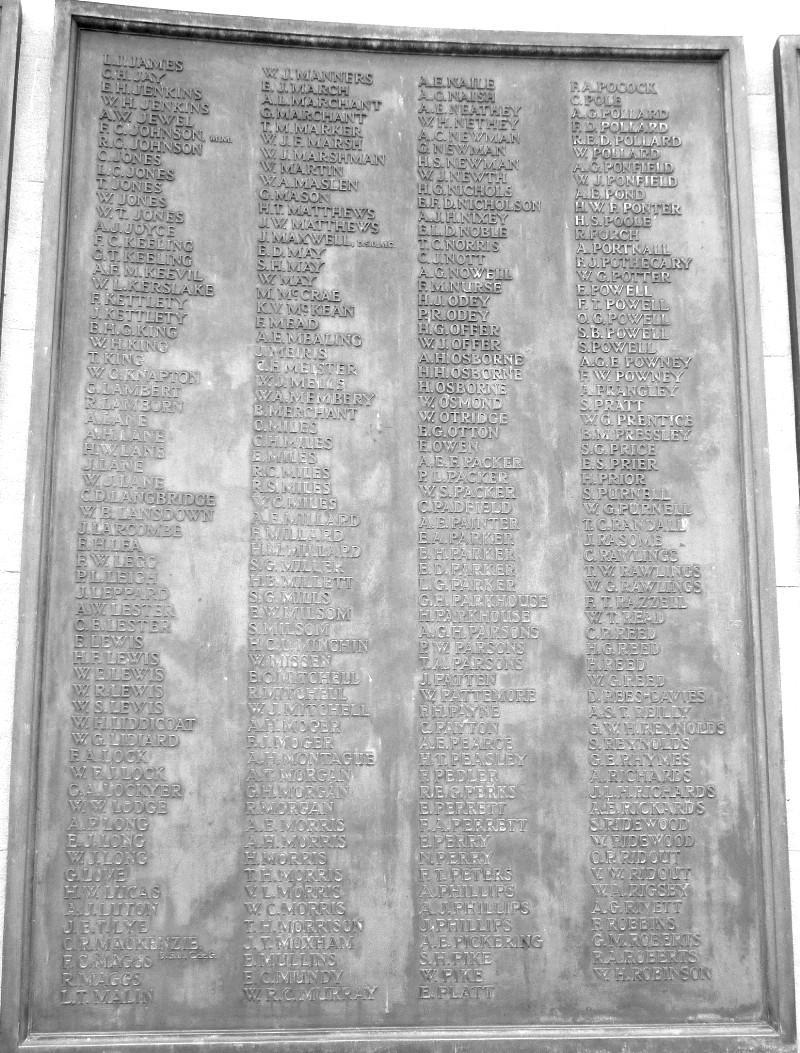 L.J.JAMES
C.H.JAY
E.H.JENKINS
W.H.JENKINS
A.W.JEWEL
F.C.JOHNSON, M.M.
R.C.JOHNSON
C.JONES
L.C.JONES
T.JONES
W.JONES
W.T.JONES
A.J.JOYCE
F.C.KEELING
G.T.KEELING
A.F.M.KEEVIL
W.L.KERSLAKE
F.KETTLETY
J.KETTLETY
E.H.G.KING
W.H.KING
T.KING
W.G.KNAPTON
C.LAMBERT
R.LAMBURN
A.LANE
A.H.LANE
H.W.LANE
J.LANE
W.J.LANE
C.D.LANGBRIDGE
W.E.LANSDOWN
J.LARCOMBE
E.H.LEA
F.W.LEGG
P.L.LEIGH
J.LEPPARD
A.W.LESTER
C.E.LESTER
E.LEWIS
H.F.LEWIS
W.E.LEWIS
W.R.LEWIS
W.S.LEWIS
W.H.LIDDICOAT
W.G.LIDIARD
F.A.LOCK
W.F.J.LOCK
C.A.LOCKYER
W.W.LODGE
A.P.LONG
E.J.LONG
W.J.LONG
G.LOVE
H.W.LUCAS
A.J.LUTON
J.E.T.LYE
C.R.MACKENZIE
F.C.MAGGS
R.MAGGS
L.T.MALIN
W.J.MANNERS
E.J.MARCH
A.L.MARCHANT
G.MARCHANT
T.M.MARKER
W.J.F.MARSH
W.J.MARSHMAN
W.MARTIN
W.A.MASLEN
G.MASON
H.T.MATTHEWS
J.W.MATTHEWS
J.MAXWELL, D.S.O., M.C.
E.D.MAY
S.H.MAY
W.MAY
M.McCRAE
K.V.McKEAN
F.MEAD
A.E.MEALING
J.MEIRIS
C.F.MEISTER
W.J.MELLS
W.A.MEMBERY
B.MERCHANT
C.MILES
C.H.MILES
E.MILES
R.C.MILES
R.S.MILES
W.C.MILES
A.E.MILLARD
F.MILLARD
H.J.MILLARD
S.G.MILLER
H.B.MILLETT
S.G.MILLS
E.W.MILSOM
S.MILSOM
H.C.L.MINCHIN
W.MISSEN
E.C.MITCHELL
R.MITCHELL
W.J.MITCHELL
A.H.MOGER
F.J.MOGER
A.H.MONTAGUE
A.T.MORGAN
G.H.MORGAN
R.MORGAN
A.E.MORRIS
A.H.MORRIS
H.MORRIS
T.H.MORRIS
V.L.MORRIS
W.C.MORRIS
T.H.MORRISON
J.T.MOXHAM
E.MULLINS
E.C.MUNDY
W.R.C.MURRAY
A.E.NAILE
A.G.NAISH
A.E.NEATHEY
W.H.NETHEY
A.C.NEWMAN
G.NEWMAN
H.S.NEWMAN
W.J.NEWTH
H.G.NICHOLS
E.F.D.NICHOLSON
A.J.H.NIXEY
E.L.D.NOBLE
T.C.NORRIS
C.J.NOTT
A.G.NOWELL
F.M.NURSE
H.J.ODEY
P.R.ODEY
H.G.OFFER
W.J.OFFER
A.H.OSBORNE
H.H.OSBORNE
H.OSBORNE
W.OSMOND
W.OTRIDGE
E.G.OTTON
F.OWEN
A.E.F.PACKER
P.L.PACKER
W.S.PACKER
C.PADFIELD
A.E.PAINTER
E.A.PARKER
E.H.PARKER
E.D.PARKER
L.G.PARKER
G.H.PARKHOUSE
H.PARKHOUSE
A.G.H.PARSONS
P.W.PARSONS
T.A.L.PARSONS
J.PATTEN
W.PATTEMORE
F.H.PAYNE
C.PAYTON
A.E.PEARCE
H.T.PEASLEY
F.PEDLER
R.E.G.PERKS
E.PERRETT
F.A.PERRETT
E.PERRY
N.PERRY
F.T.PETERS
A.PHILLIPS
A.J.PHILLIPS
J.PHILLIPS
A.E.PICKERING
S.H.PIKE
W.PIKE
E.PLATT
F.A.POCOCK
C.POLE
A.G.POLLARD
F.D.POLLARD
R.E.D.POLLARD
W.POLLARD
A.G.PONFIELD
W.J.PONFIELD
A.E.POND
H.W.F.PONTER
H.S.POOLE
R.PORCH
A.PORTNALL
F.J.POTHECARY
W.G.POTTER
E.POWELL
F.T.POWELL
O.G.POWELL
S.B.POWELL
S.POWELL
A.G.E.POWNEY
F.W.POWNEY
A.PRANGLEY
S.PRATT
W.G.PRENTICE
B.M.PRESSLEY
S.G.PRICE
E.S.PRIER
H.PRIOR
S.PURNELL
W.G.PURNELL
T.C.RANDALL
J.RASOME
C.RAWLINGS
T.W.RAWLINGS
W.G.RAWLINGS
F.T.RAZZELL
W.T.READ
C.P.REED
H.G.REED
H.REED
W.G.REED
D.REES-DAVIES
A.S.T.REILLY
G.W.H.REYNOLDS
S.REYNOLDS
G.E.RHYMES
A.RICHARDS
J.L.H.RICHARDS
A.E.RICKARDS
S.RIDEWOOD
W.RIDEWOOD
C.P.RIDOUT
V.W.RIDOUT
W.A.RIGSEY
A.G.RIVETT
F.ROBBINS
G.M.ROBERTS
R.A.ROBERTS
W.H.ROBINSON